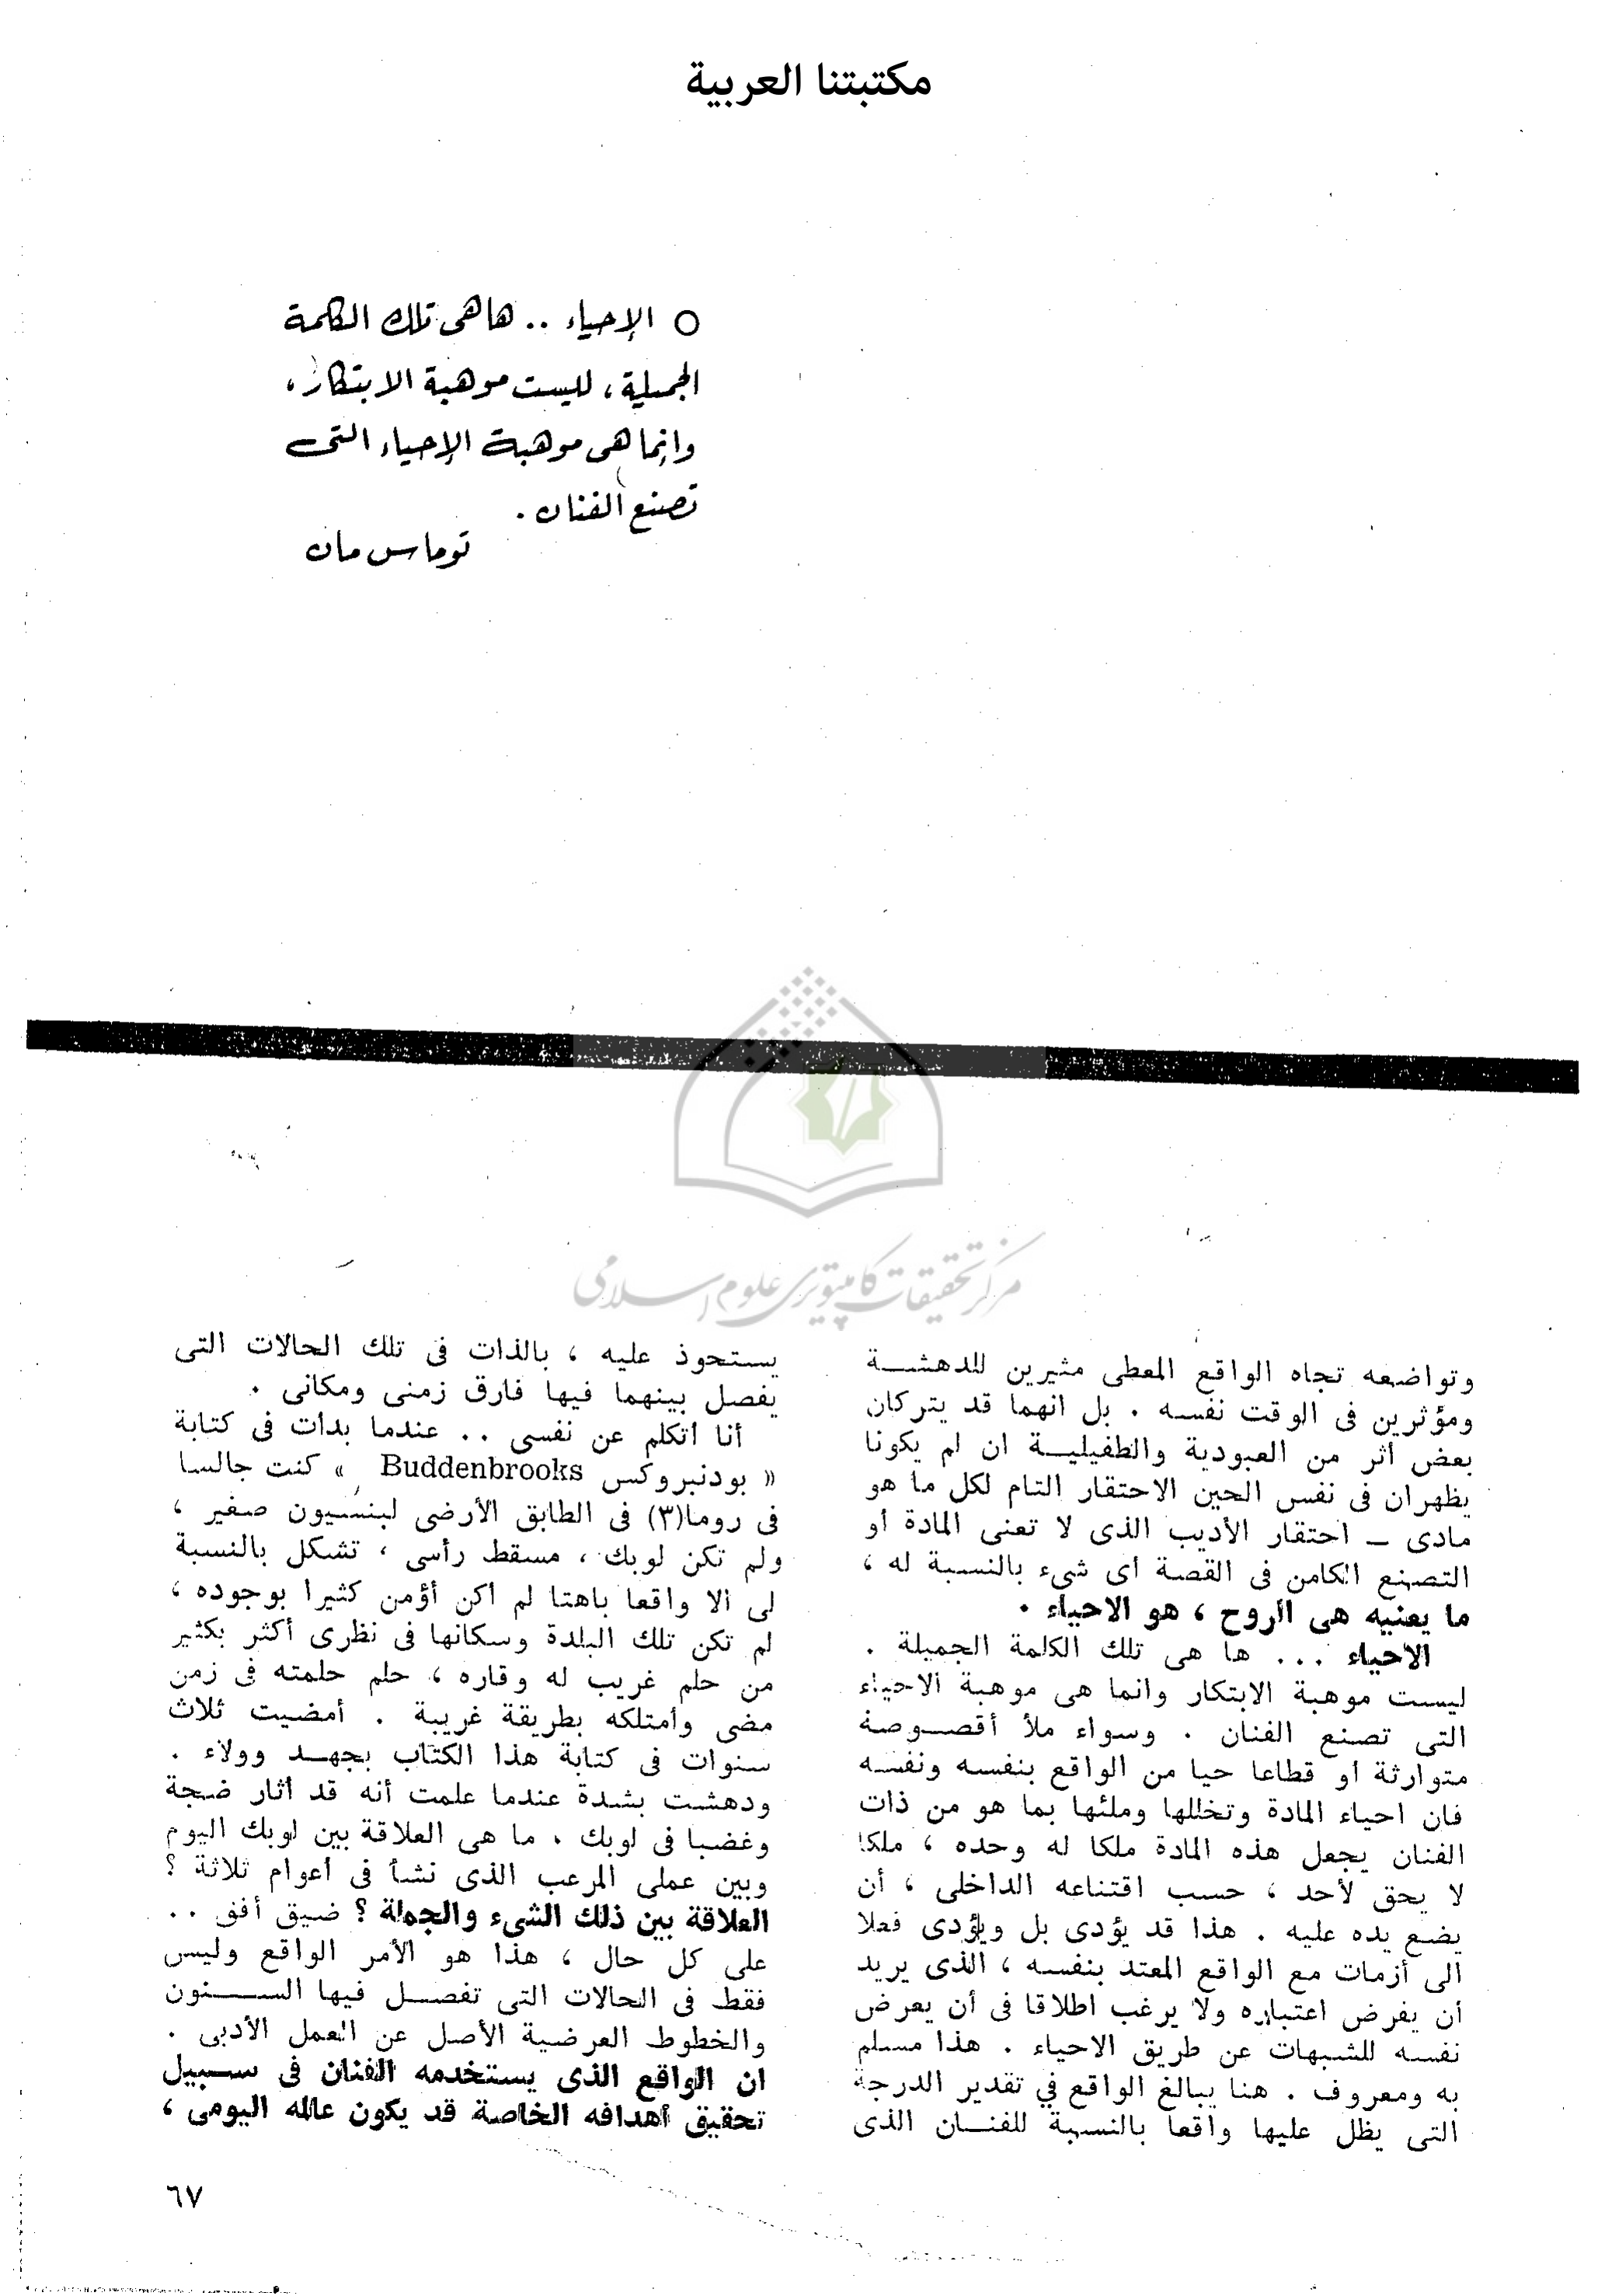 مكتبتنا العربية
○ الإحياء .. هاهى تلك الكلمة
الجميلة، ليست موهبة الابتكار،
وإنما هى موهبة الإحياء التى
تصنع الفنان.
توماس مان
مركز تحقيقات كامپيوترى علوم اسلامى
وتواضعه تجاه الواقع المعطى مثيرين للدهشـــة
ومؤثرين فى الوقت نفسه . بل انهما قد يتركان
بعض أثر من العبودية والطفيليـــة ان لم يكونا
يظهران فى نفس الحين الاحتقار التام لكل ما هو
مادى ــ احتقار الأديب الذى لا تعنى المادة أو
التصنع الكامن فى القصة أى شىء بالنسبة له ،
ما يعنيه هى الروح ، هو الاحياء .
الاحياء ... ها هى تلك الكلمة الجميلة .
ليست موهبة الابتكار وانما هى موهبة الاحياء
التى تصنع الفنان . وسواء ملأ أقصـــوصة
متوارثة أو قطاعا حيا من الواقع بنفسه ونفسه
فان احياء المادة وتخللها وملئها بما هو من ذات
الفنان يجعل هذه المادة ملكا له وحده ، ملكا
لا يحق لأحد ، حسب اقتناعه الداخلى ، أن
يضع يده عليه . هذا قد يؤدى بل ويؤدى فعلا
الى أزمات مع الواقع المعتد بنفسه ، الذى يريد
أن يفرض اعتباره ولا يرغب اطلاقا فى أن يعرض
نفسه للشبهات عن طريق الاحياء . هذا مسلم
به ومعروف . هنا يبالغ الواقع في تقدير الدرجة
التى يظل عليها واقعا بالنسبة للفنـــان الذى
يستحوذ عليه ، بالذات فى تلك الحالات التى
يفصل بينهما فيها فارق زمنى ومكانى .
أنا أتكلم عن نفسى .. عندما بدأت فى كتابة
« بودنبروكس Buddenbrooks » كنت جالسا
فى روما(٣) فى الطابق الأرضى لبنسيون صغير ،
ولم تكن لوبك ، مسقط رأسى ، تشكل بالنسبة
لى الا واقعا باهتا لم أكن أؤمن كثيرا بوجوده ،
لم تكن تلك البلدة وسكانها فى نظرى أكثر بكثير
من حلم غريب له وقاره ، حلم حلمته فى زمن
مضى وأمتلكه بطريقة غريبة . أمضيت ثلاث
سنوات فى كتابة هذا الكتاب بجهـــد وولاء .
ودهشت بشدة عندما علمت أنه قد أثار ضجة
وغضبا فى لوبك . ما هى العلاقة بين لوبك اليوم
وبين عملى المرعب الذى نشأ فى أعوام ثلاثة ؟
العلاقة بين ذلك الشىء والجملة ؟ ضيق أفق ..
على كل حال ، هذا هو الأمر الواقع وليس
فقط فى الحالات التى تفصـــل فيها الســـنون
والخطوط العرضية الأصل عن العمل الأدبى .
ان الواقع الذى يستخدمه الفنان فى ســـبيل
تحقيق أهدافه الخاصة قد يكون عالمه اليومى ،
٦٧